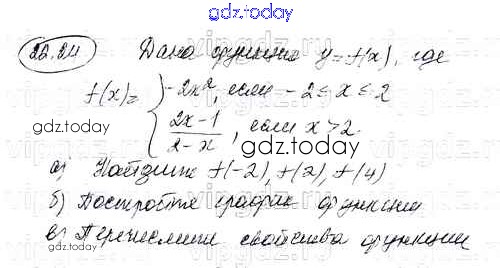 gdz.today
22.24 Дана функция y=f(x), где
gdz.today
f(x)= { -2x², если -2≤x≤2
(2x-1)/(2-x), если x>2.
gdz.today
gdz.today
а) Найдите f(-2), f(2), f(4)
б) Постройте график функции
в) Перечислить свойства функции
gdz.today